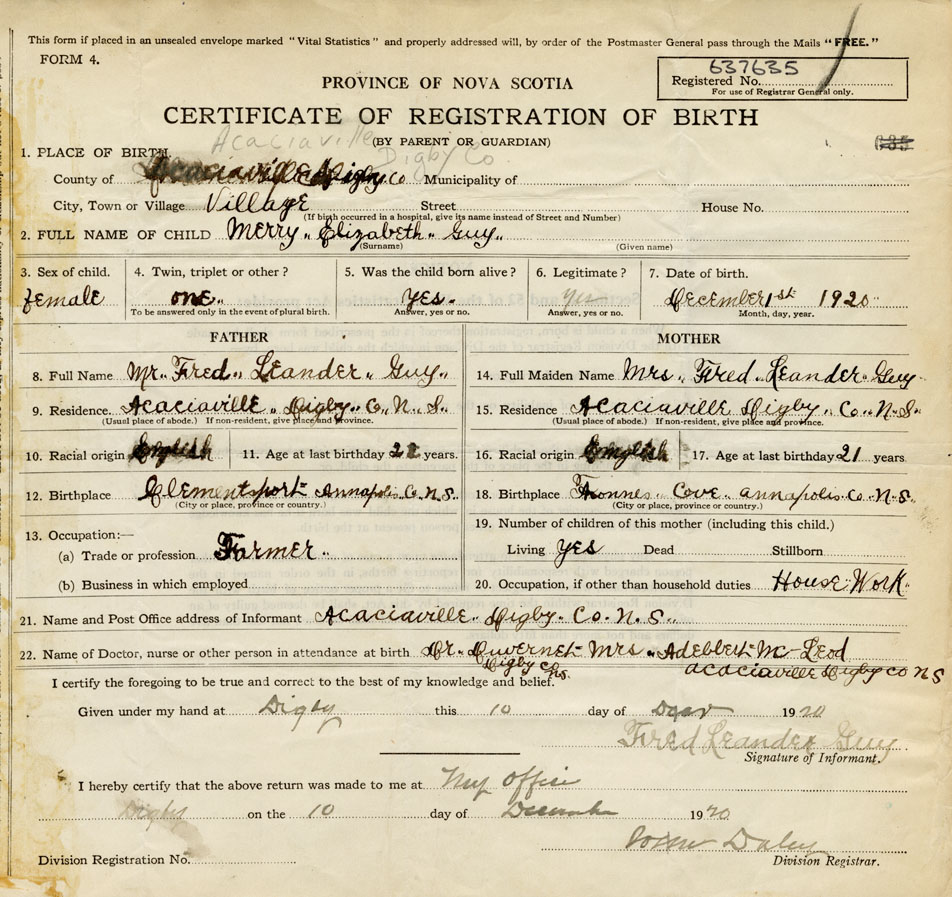 This form if placed in an unsealed envelope marked "Vital Statistics" and properly addressed will, by order of the Postmaster General pass through the Mails "FREE."
FORM 4.
637635
Registered No.
For use of Registrar General only.
PROVINCE OF NOVA SCOTIA
CERTIFICATE OF REGISTRATION OF BIRTH
(BY PARENT OR GUARDIAN)
Acaciaville Digby Co
1. PLACE OF BIRTH
County of Acaciaville Digby Co Municipality of
City, Town or Village Village Street House No.
(If birth occurred in a hospital, give its name instead of Street and Number)
2. FULL NAME OF CHILD Merry Elizabeth Guy
(Surname) (Given name)
3. Sex of child. 4. Twin, triplet or other? 5. Was the child born alive? 6. Legitimate? 7. Date of birth.
female one. Yes. Yes December 1st 1920
To be answered only in the event of plural birth. Answer, yes or no. Answer, yes or no. Month, day, year.
FATHER
8. Full Name Mr. Fred. Leander Guy
9. Residence. Acaciaville Digby. Co. N. S.
(Usual place of abode.) If non-resident, give place and province.
10. Racial origin English 11. Age at last birthday years.
12. Birthplace Clementsport Annapolis. Co. N. S.
(City or place, province or country.)
13. Occupation:—
(a) Trade or profession Farmer.
(b) Business in which employed
MOTHER
14. Full Maiden Name Mrs. Fred Leander Guy
15. Residence Acaciaville Digby. Co. N. S.
(Usual place of abode.) If non-resident, give place and province.
16. Racial origin English 17. Age at last birthday 21 years
18. Birthplace Cove annapolis. Co. N. S.
(City or place, province or country.)
19. Number of children of this mother (including this child.)
Living Yes Dead Stillborn
20. Occupation, if other than household duties House Work.
21. Name and Post Office address of Informant Acaciaville Digby. Co. N. S.
22. Name of Doctor, nurse or other person in attendance at birth Dr. Duvernet Mrs. Adelbert Mc Leod
Digby Co NS. acaciaville Digby co N S
I certify the foregoing to be true and correct to the best of my knowledge and belief.
Given under my hand at Digby this 10 day of 1920
Fred Leander Guy
Signature of Informant.
I hereby certify that the above return was made to me at My Office
Digby on the 10 day of December 1920
Daley
Division Registration No. Division Registrar.